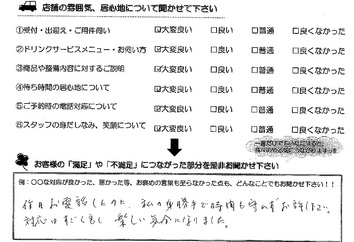 店舗の雰囲気、居心地について聞かせて下さい
①受付・出迎え・ご用件伺い ☑大変良い □良い □普通 □良くなかった
②ドリンクサービスメニュー・お伺い方 ☑大変良い □良い □普通 □良くなかった
③商品や整備内容に対するご説明 ☑大変良い □良い □普通 □良くなかった
④待ち時間の居心地について ☑大変良い □良い □普通 □良くなかった
⑤ご予約時の電話対応について ☑大変良い □良い □普通 □良くなかった
⑥スタッフの身だしなみ、笑顔について ☑大変良い □良い □普通 □良くなかった
お客様の「満足」や「不満足」につながった部分を是非お聞かせ下さい
例：○○な対応が良かった、悪かった等、お褒めの言葉も至らなかった点も、どんなことでもお聞かせ下さい！！
昨日お電話したのに、私の身勝手で時間も
対応はすごく良く 楽しい気分になりました。